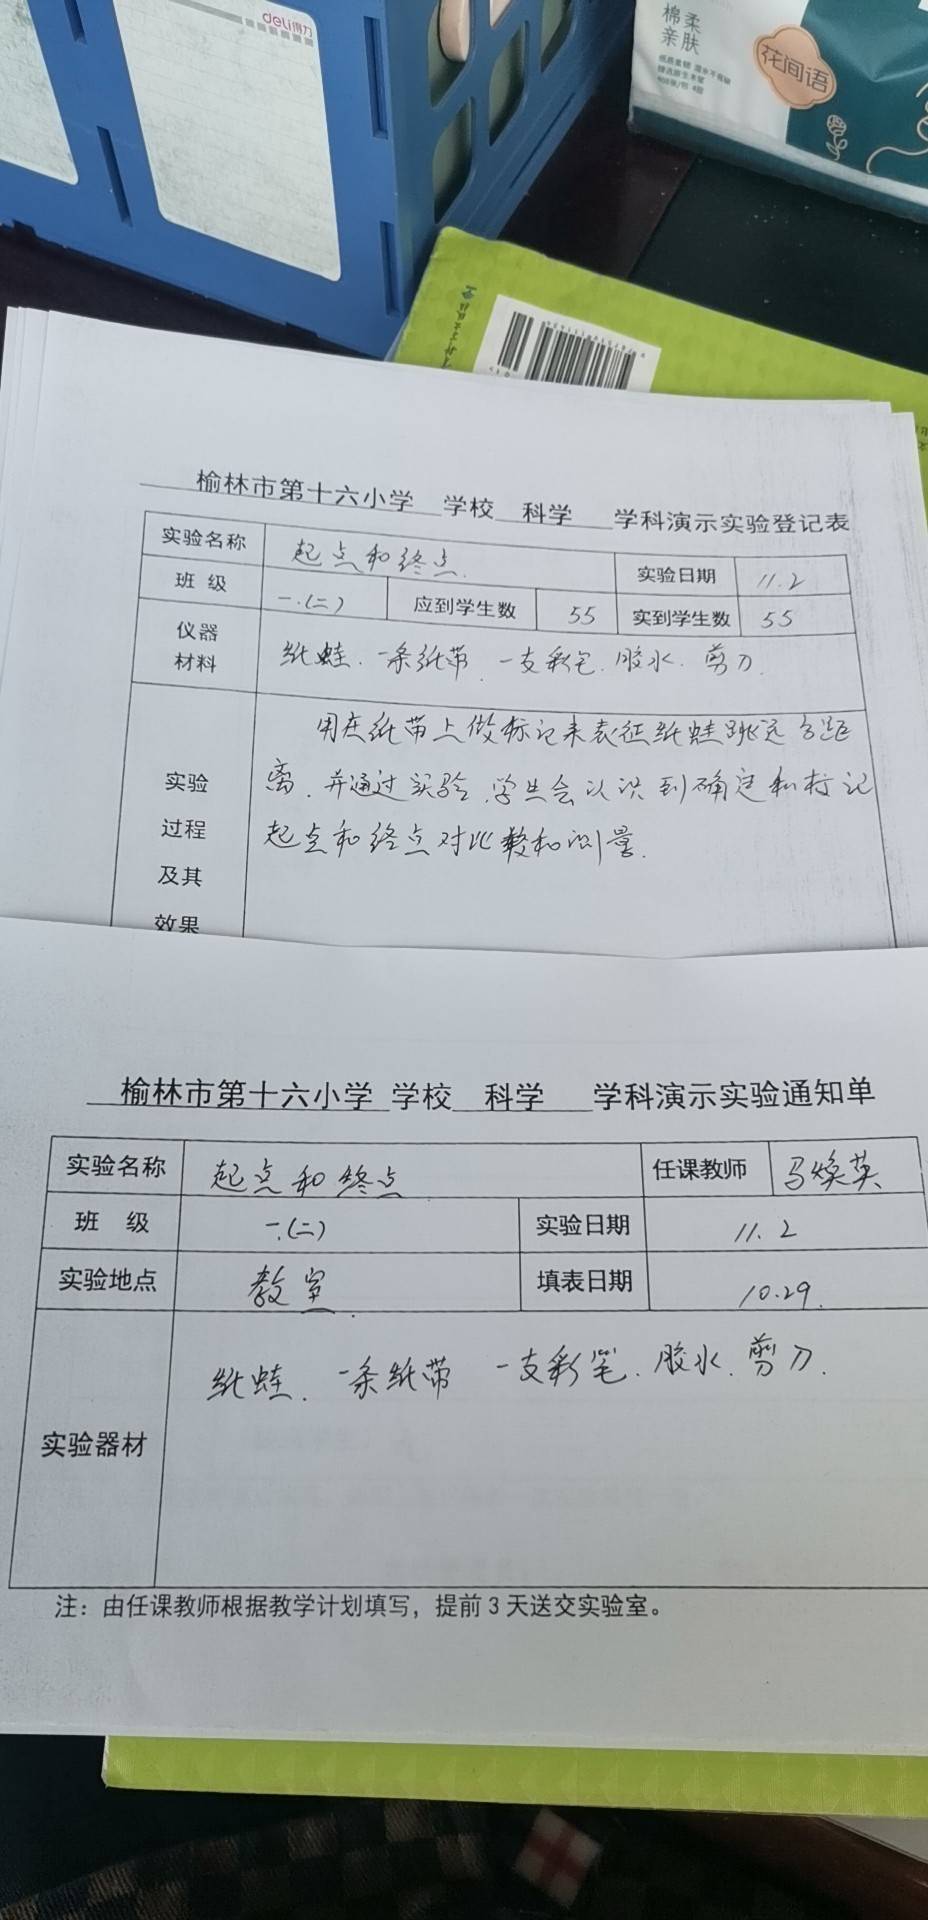 deli得力
棉柔
亲肤
花间语
榆林市第十六小学 学校 科学 学科演示实验登记表
实验名称 起点和终点. 实验日期 11.2
班 级 一.(二) 应到学生数 55 实到学生数 55
仪器
材料
纸蛙. 一条纸带. 一支彩笔. 胶水. 剪刀.
用在纸带上做标记来表征纸蛙跳远的距
离. 并通过实验, 学生会认识到确定和标记
起点和终点对比较和测量.
实验
过程
及其
效果
榆林市第十六小学 学校 科学 学科演示实验通知单
实验名称 起点和终点 任课教师 马焕英
班 级 一.(二) 实验日期 11.2
实验地点 教室. 填表日期 10.29.
实验器材 纸蛙. 一条纸带 一支彩笔. 胶水. 剪刀.
注：由任课教师根据教学计划填写，提前 3 天送交实验室。